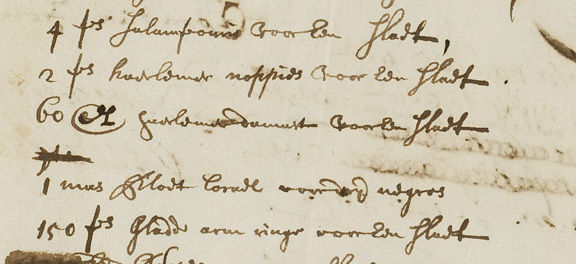 4 ps Salamporis voor een Slaet,
2 ps haerlemer noppies voor een Slaet.
60 El haerlemer damast voor een Slaet
1 mas bloet corael voor negros
150 ps gladde arm ringe voor een Slaet